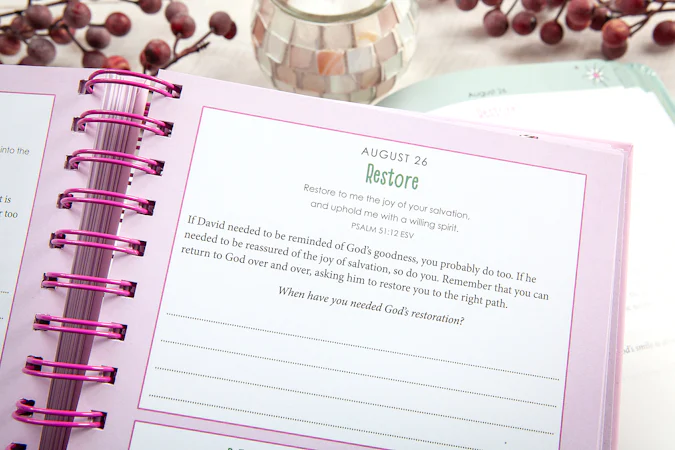 into the
t is
r too
AUGUST 26
Restore
Restore to me the joy of your salvation,
and uphold me with a willing spirit.
PSALM 51:12 ESV
If David needed to be reminded of God's goodness, you probably do too. If he
needed to be reassured of the joy of salvation, so do you. Remember that you can
return to God over and over, asking him to restore you to the right path.
When have you needed God's restoration?
August 26